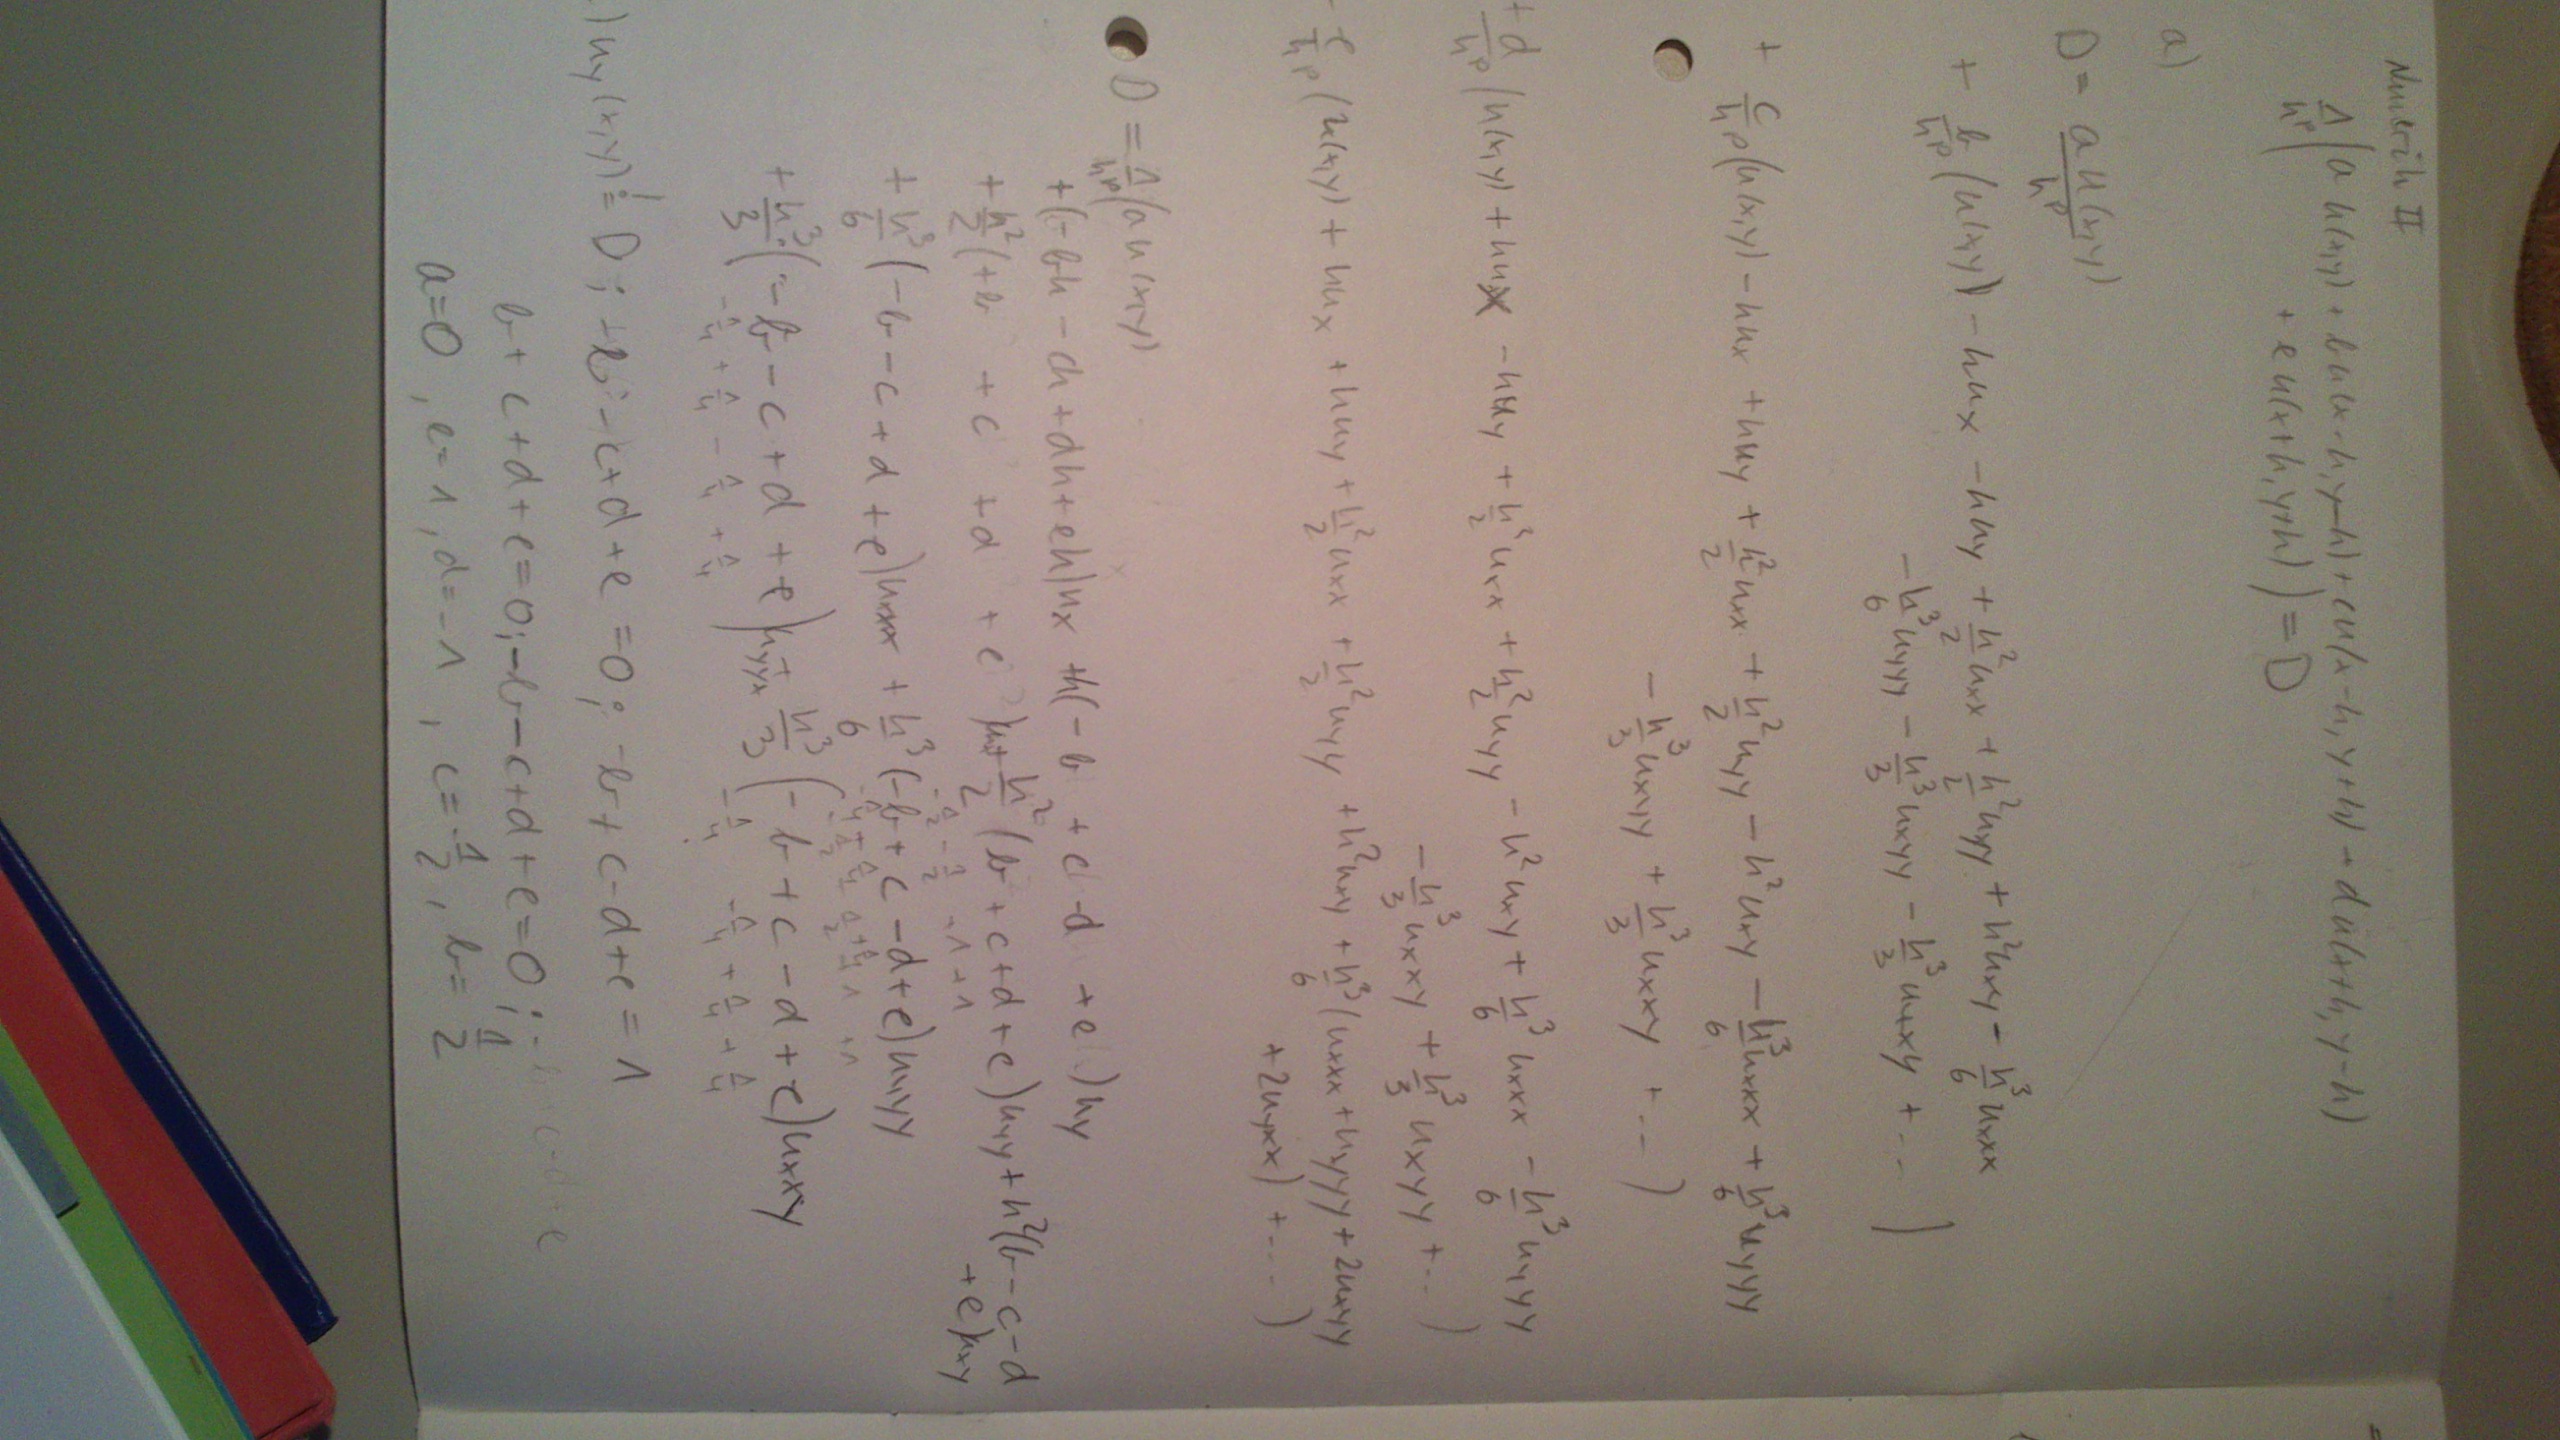 Numerik II
1/h^p (a u(x,y) + b u(x-h,y-h) + c u(x-h,y+h) + d u(x+h,y-h)
+ e u(x+h,y+h)) = D
a)
D = a u(x,y)/h^p
+ b/h^p (u(x,y) - hux - huy + h²/2 uxx + h²/2 uyy + h²uxy - h³/6 uxxx
- h³/6 uyyy - h³/3 uxyy - h³/3 uxxy + ... )
+ c/h^p (u(x,y) - hux + huy + h²/2 uxx + h²/2 uyy - h²uxy - h³/6 uxxx + h³/6 uyyy
- h³/3 uxyy + h³/3 uxxy + ... )
+ d/h^p (u(x,y) + hux - huy + h²/2 uxx + h²/2 uyy - h²uxy + h³/6 uxxx - h³/6 uyyy
- h³/3 uxxy + h³/3 uxyy + ... )
e/h^p (u(x,y) + hux + huy + h²/2 uxx + h²/2 uyy + h²uxy + h³/6 (uxxx + uyyy + 2uxyy
+ 2uyxx) + ... )
D = 1/h^p (a u(x,y)
+ (-bh - ch + dh + eh)ux + h(-b + c - d + e)uy
+ h²/2 (+b + c + d + e) + h²/2 (b + c + d + e)uyy + h²(b - c - d
+ e)uxy
+ h³/6 (-b - c + d + e)uxxx + h³/6 (-b + c - d + e)uyyy
+ h³/3 (-b - c + d + e)uyyx + h³/3 (-b + c - d + e)uxxy
-1/4 + 1/4 - 1/4 + 1/4
) uy(x,y) != D; +b - c + d + e = 0; -b + c - d + e = 1
b + c + d + e = 0; -b - c + d + e = 0;
a=0, e=1, d=-1, c=1/2, b=1/2